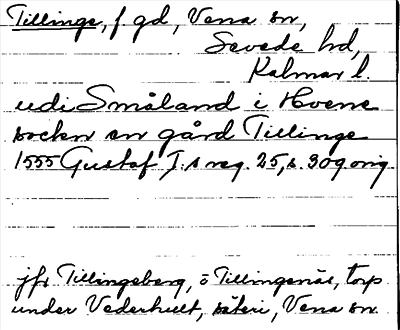 Tillinge, f gd, Vena sn,
Sevede hd,
Kalmar l.
udi Småland i Hvena
sockn en gård Tillinge
1555 Gustaf I:s reg. 25, s. 309 orig
jfr Tillingeberg, ö Tillingenäs, torp
under Vederhult, säteri, Vena sn